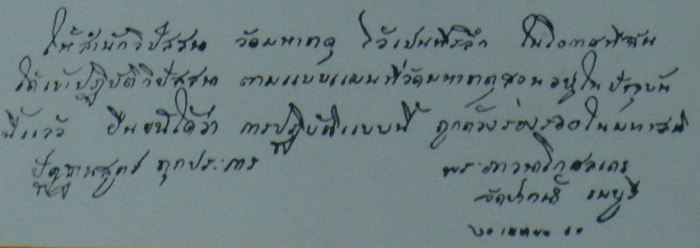 ให้สำนักวิปัสสนา วัดมหาธาตุ ไว้เป็นที่รลึก ในโอกาสที่ฉัน
ได้เข้าปฏิบัติวิปัสสนา ตามแบบแผนที่วัดมหาธาตุสอนอยู่ในปัจจุบัน
นี้แล้ว ยืนยันได้ว่า การปฏิบัติแบบนี้ ถูกต้องร่องรอยในมหาสติ
ปัฏฐานสูตร ทุกประการ
พระภาวนาโกศลเถร
วัดปากน้ำ ธนบุรี